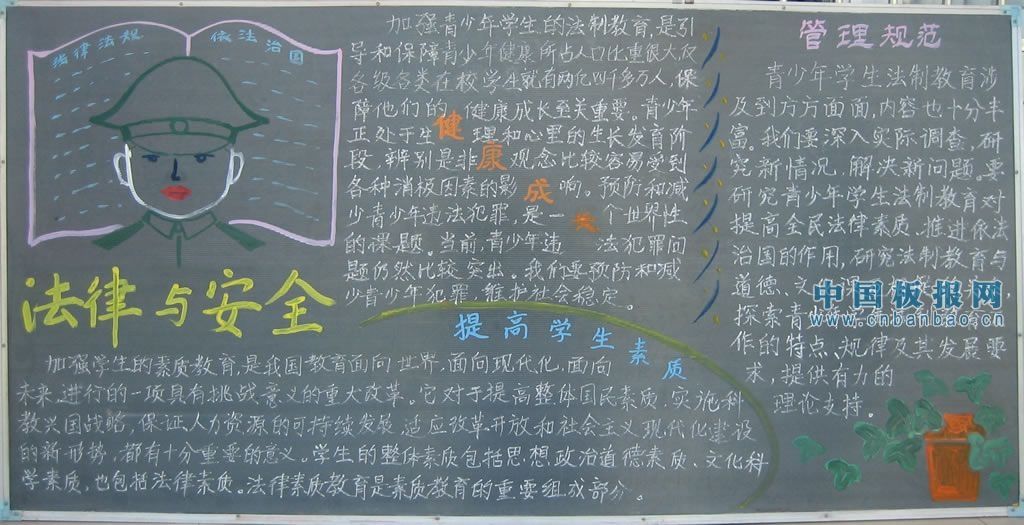 法律法规
依法治国
法律与安全
加强青少年学生的法制教育,是引
导和保障青少年健康所占人口比重很大,仅
各级各类在校学生就有两亿四千多万人,保
障他们的健康成长至关重要。青少年
正处于生理和心里的生长发育阶
段,辨别是非观念比较容易受到
各种消极因素的影响。预防和减
少青少年违法犯罪,是一个世界性
的课题。当前,青少年违法犯罪问
题仍然比较突出。我们要预防和减
少青少年犯罪,维护社会稳定。
健康成长
提高学生素质
加强学生的素质教育,是我国教育面向世界,面向现代化,面向
未来,进行的一项具有挑战意义的重大改革。它对于提高整体国民素质,实施科
教兴国战略,保证人力资源的可持续发展,适应改革开放和社会主义现代化建设
的新形势,都有十分重要的意义。学生的整体素质包括思想政治道德素质、文化科
学素质,也包括法律素质。法律素质教育是素质教育的重要组成部分。
管理规范
青少年学生法制教育涉
及到方方面面,内容也十分丰
富。我们要深入实际调查,研
究新情况,解决新问题。要
研究青少年学生法制教育对
提高全民法律素质、推进依法
治国的作用,研究法制教育与
道德、文
探索青
作的特点、规律及其发展要
求,提供有力的
理论支持。
中国板报网
www.cnbanbao.cn